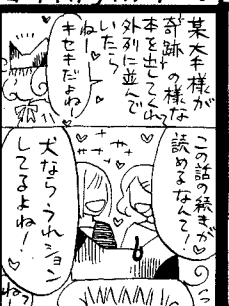 某大手様が
奇跡の様な
本を出してくれ
外列に並んで
いたら
ねー♡
キセキだよねー
この話の続きが
読めるなんて!
犬ならうれション
してるよね!